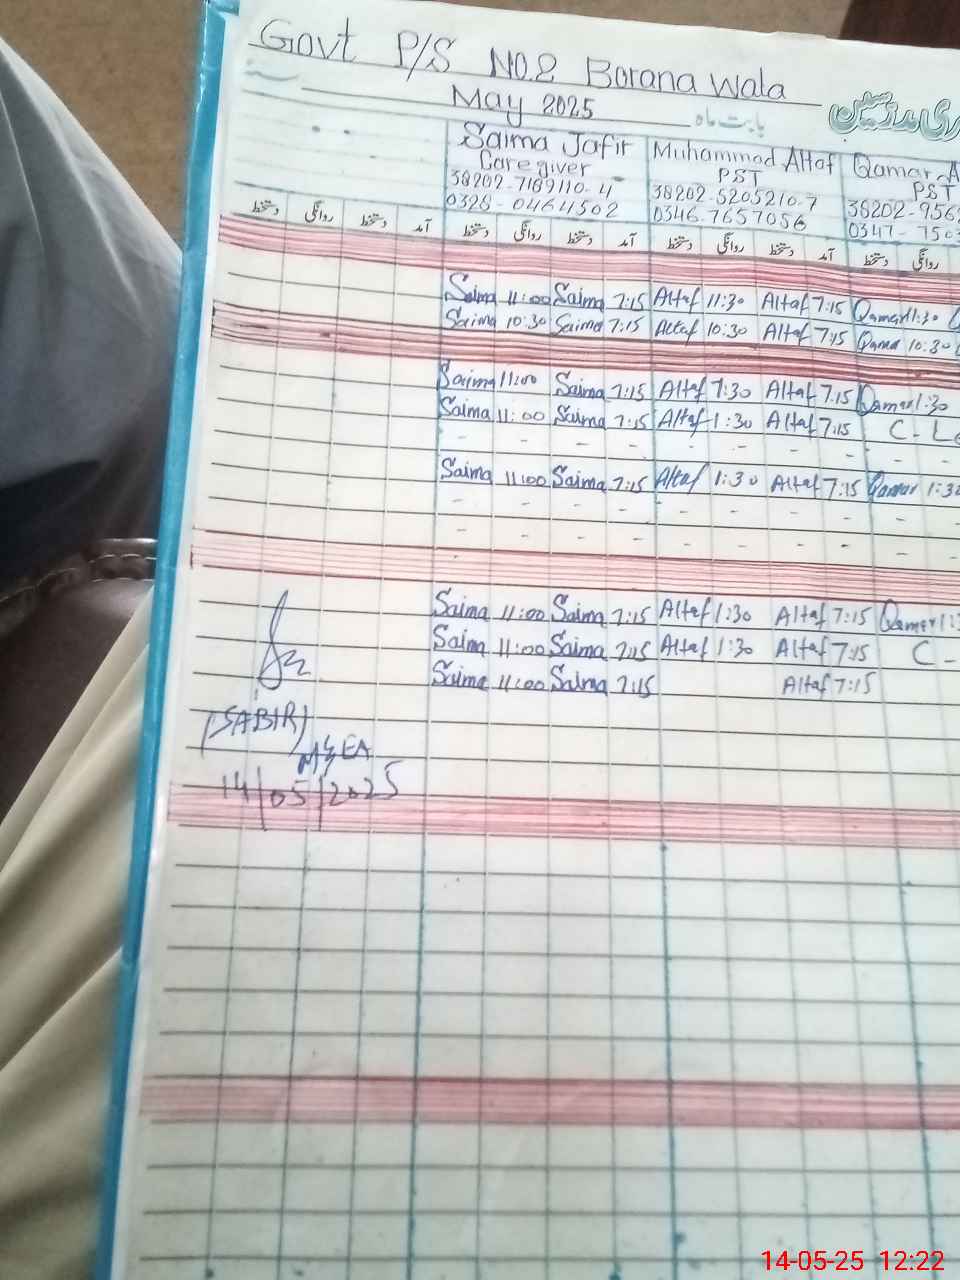 Govt P/S NO.2 Borana wala
سنہ
May 2025 بابت ماہ
Saima Jafir Muhammad Altaf Qamar A
Caregiver PST PST
38202-7189110-4 38202-5205210-7 38202-956
0328-0464502 0346-7657056 0347-750
دستخط روانگی دستخط آمد دستخط روانگی دستخط آمد دستخط روانگی دستخط آمد دستخط روانگی
Saima 11:00 Saima 7:15 Altaf 11:30 Altaf 7:15 Qamar 11:30
Saima 10:30 Saima 7:15 Altaf 10:30 Altaf 7:15 Qama 10:30
Saima 11:00 Saima 7:15 Altaf 1:30 Altaf 7:15 Qamar 1:30
Saima 11:00 Saima 7:15 Altaf 1:30 Altaf 7:15 C-Le
- - - - - - - - - -
Saima 11:00 Saima 7:15 Altaf 1:30 Altaf 7:15 Qamar 1:30
- - - - - - - - - -
- - - - - - - - - -
Saima 11:00 Saima 7:15 Altaf 1:30 Altaf 7:15 Qamar 1:
Saima 11:00 Saima 7:15 Altaf 1:30 Altaf 7:15 C-
Saima 11:00 Saima 7:15 Altaf 7:15
(SABIR)
MEA
14/05/2025
14-05-25 12:22